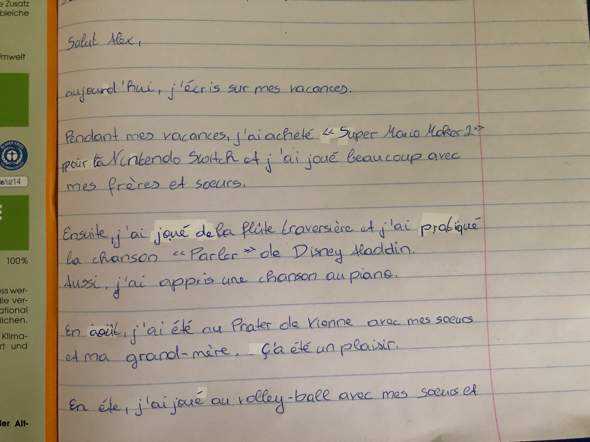 e Zusatz
bleiche
mwelt
e/uz14
100%
ss wer-
lie ver-
ational
lichen.
Klima-
rt und
der Alt-
Salut Alex,
aujourd'hui, j'écris sur mes vacances.
Pendant mes vacances, j'ai acheté « Super Mario Maker 2 »
pour la Nintendo Switch et j'ai joué beaucoup avec
mes frères et soeurs.
Ensuite, j'ai joué de la flûte traversière et j'ai pratiqué
la chanson « Parler » de Disney Aladdin.
Aussi, j'ai appris une chanson au piano.
En août, j'ai été au Prater de Vienne avec mes soeurs
et ma grand-mère. Ça été un plaisir.
En éte, j'ai joué au volley-ball avec mes soeurs et